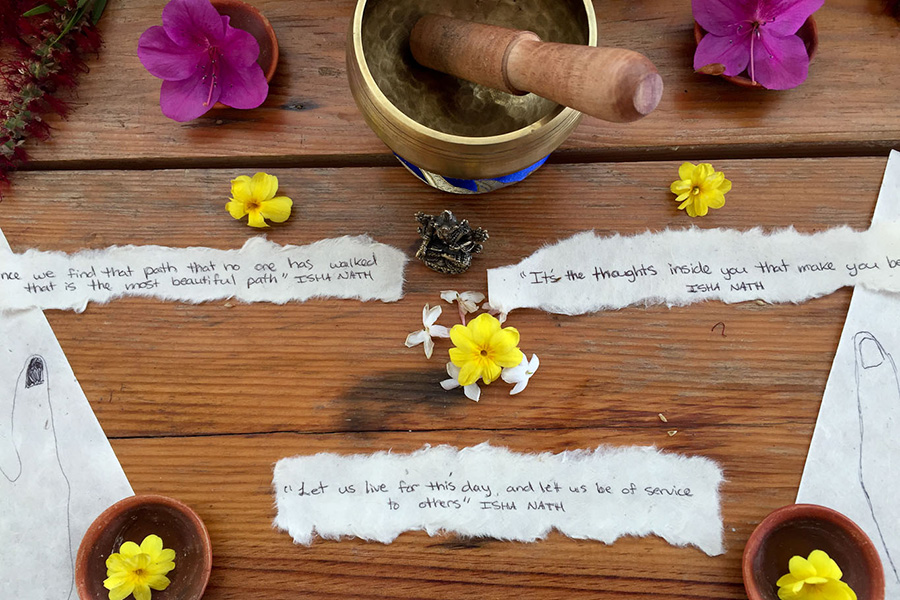 nce we find that path that no one has walked
that is the most beautiful path" ISHA NATH
"It's the thoughts inside you that make you be
ISHA NATH
"Let us live for this day, and let us be of service
to others" ISHA NATH